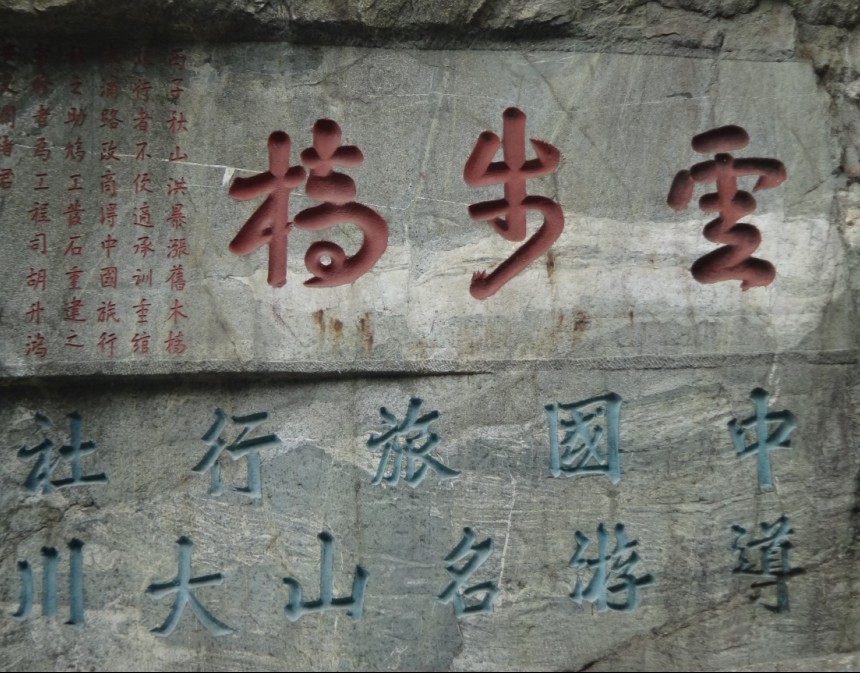 雲步橋
丙子秋山洪暴漲舊木橋
行者不便適承訓重綰
浦路政商得中國旅行
社之助鳩工石重建之
者為工程司胡升鴻
諸君
中國旅行社
導游名山大川